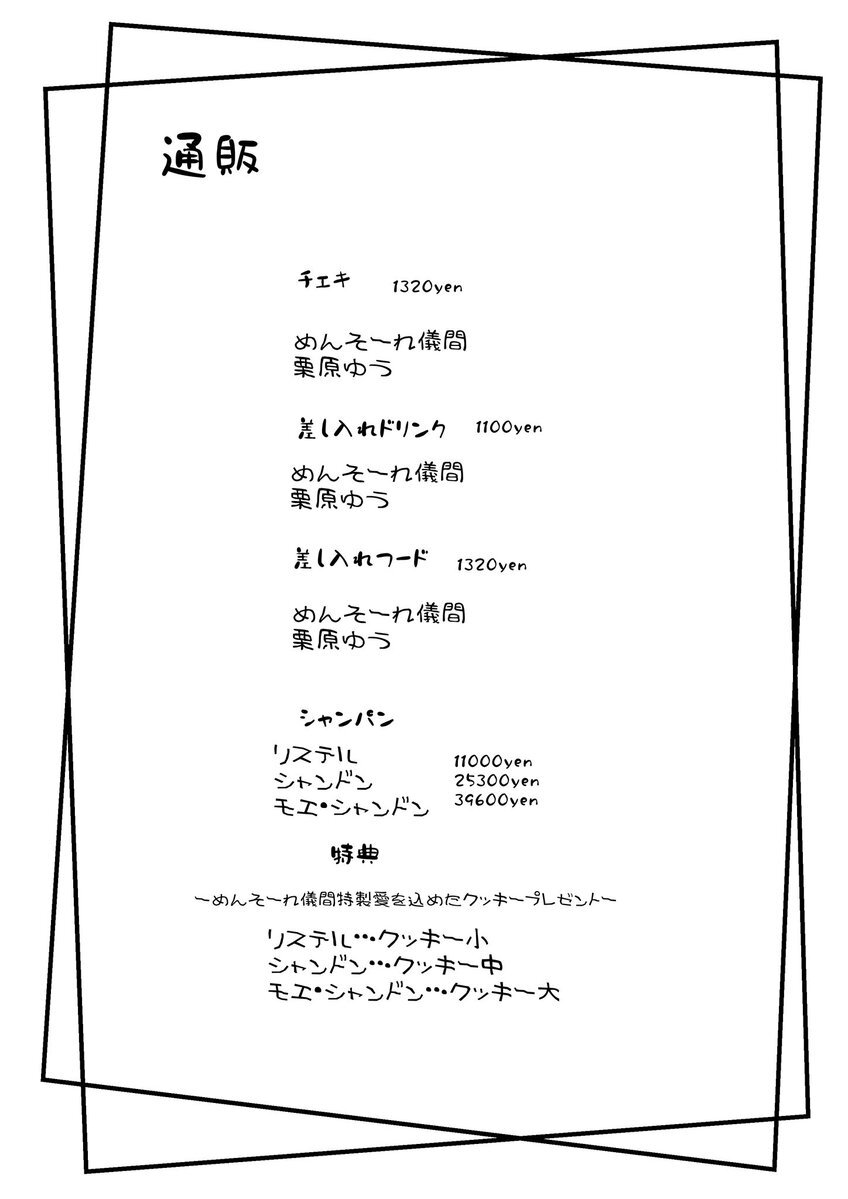 通販
チェキ 1320yen
めんそーれ儀間
栗原ゆう
差し入れドリンク 1100yen
めんそーれ儀間
栗原ゆう
差し入れフード 1320yen
めんそーれ儀間
栗原ゆう
シャンパン
リステル 11000yen
シャンドン 25300yen
モエ•シャンドン 39600yen
特典
ーめんそーれ儀間特製愛を込めたクッキープレゼントー
リステル…クッキー小
シャンドン…クッキー中
モエ•シャンドン…クッキー大